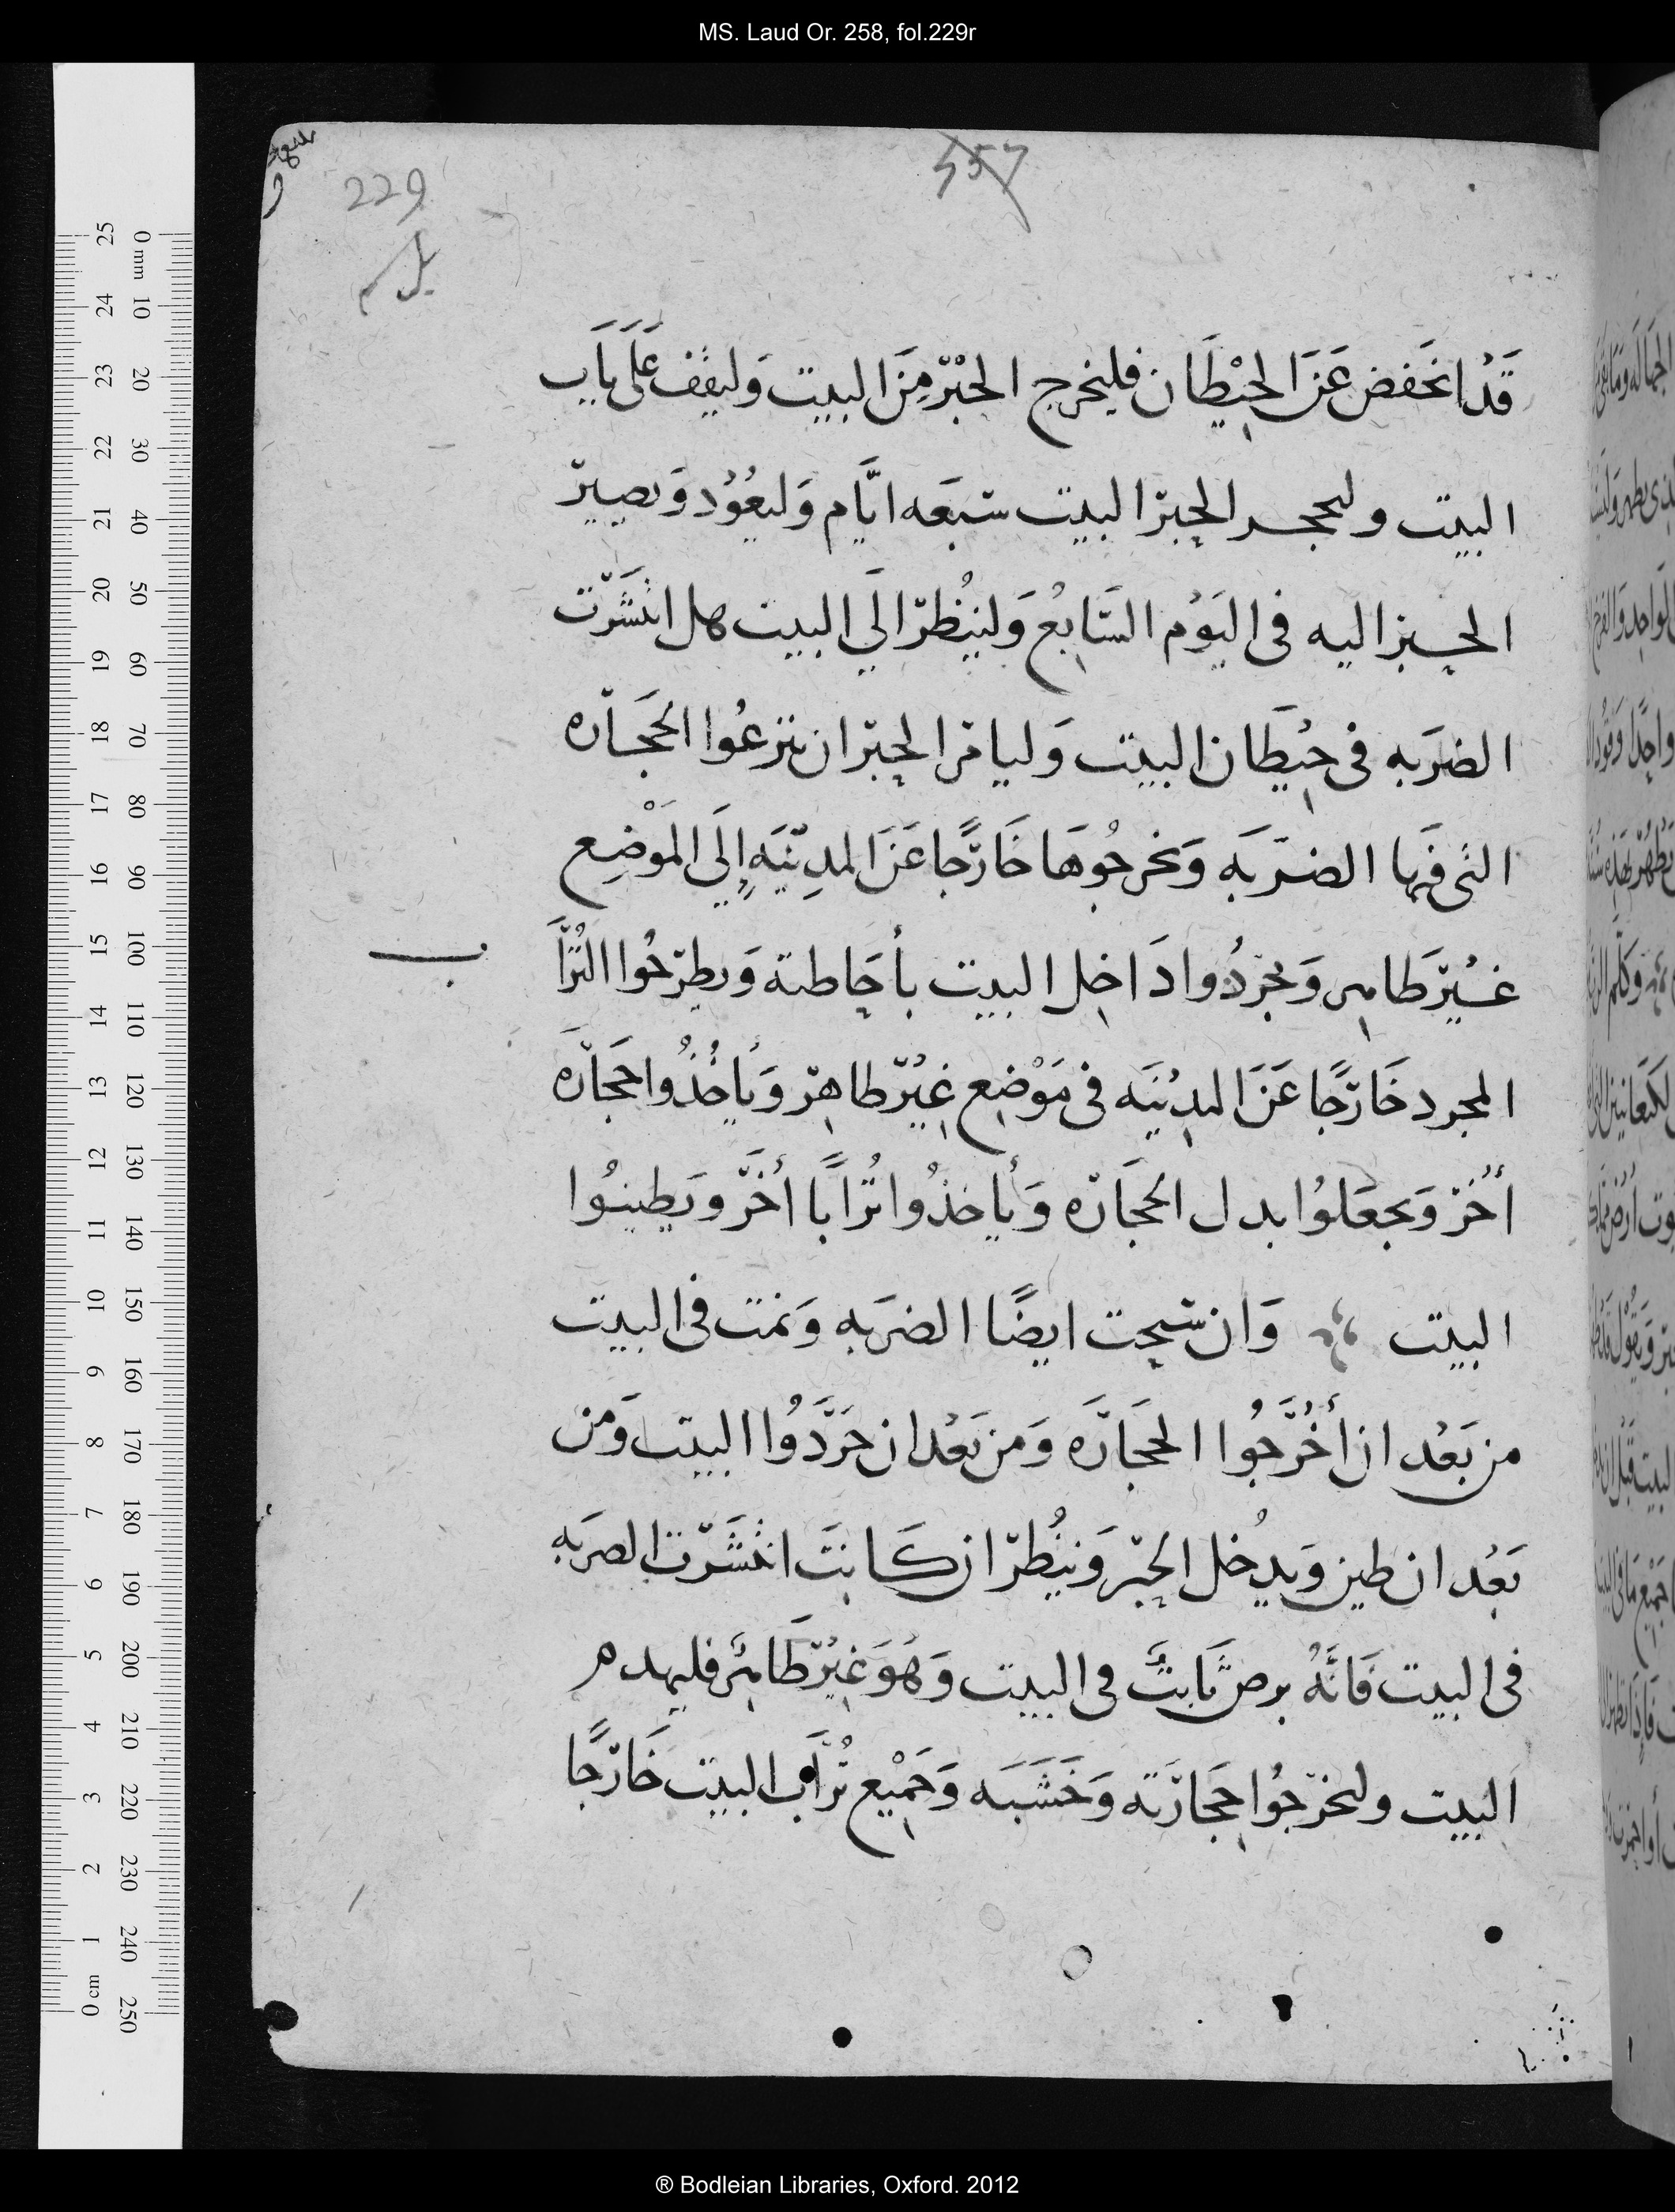 MS. Laud Or. 258, fol.229r
557
229
قَدُ انخَفض عَنَ الحِيْطَان فليخرج الحَبْرّ مِنَ البيت وَليقف عَلَى بَاب
البيت وليحجر الحِبرّ البيت سّبَعَه ايَّام وَليعُوُد وَيصيرّ
الحِبز اليه فى اليَوُم السَّابعُ وَلينُظرّ الَي البيت هل انتشَرّت
الضرَبه فى حِيُطَان البيت وَليامرّ الحِبرّ ان ينزعُوا الحجَارّه
التى فيَها الضرّبَه وَيخرجُوهَا خَارّجًا عَنَ المدِيّنَه إِلَى المَوْضِع
غَيُرّ طَاهِر وَيجردُوا دَاخِل البيت بأحَاطتة وَيطرّحُوا التُرَّا
ب
المجرد خَارّجًا عَنَ المدِيُنَه فى مَوْضِع غيُرّ طاهِرّ وَيأخُذُوا حَجَارّه
أُخُرّ وَيجعَلوُا بدل الحجَارّه وَيأخذُوا تُرّابًا أُخَرّ ويَطينوُا
البيت وَان سّبحت ايضًا الضرَبه وَنمت فى البيت
من بَعُد ان أُخُرّجُوا الحجَارَّه وَمن بَعُد ان جَرّدَوُا البيت وَمن
بَعُد ان طين وَيدُخل الحِبّر وَينُظرّ ان كَانتَ انتشَرّت الضرَبه
فى البيت فَانَّهُ برص ثَابتٌ فى البيت وَهُوَ غيُرّ طَاهِر فليهدم
البيت وليخرّجُوا حِجَارّتَة وَخَشَبَه وَجَمِيْع تُرّاب البيت خَارّجًا
® Bodleian Libraries, Oxford. 2012